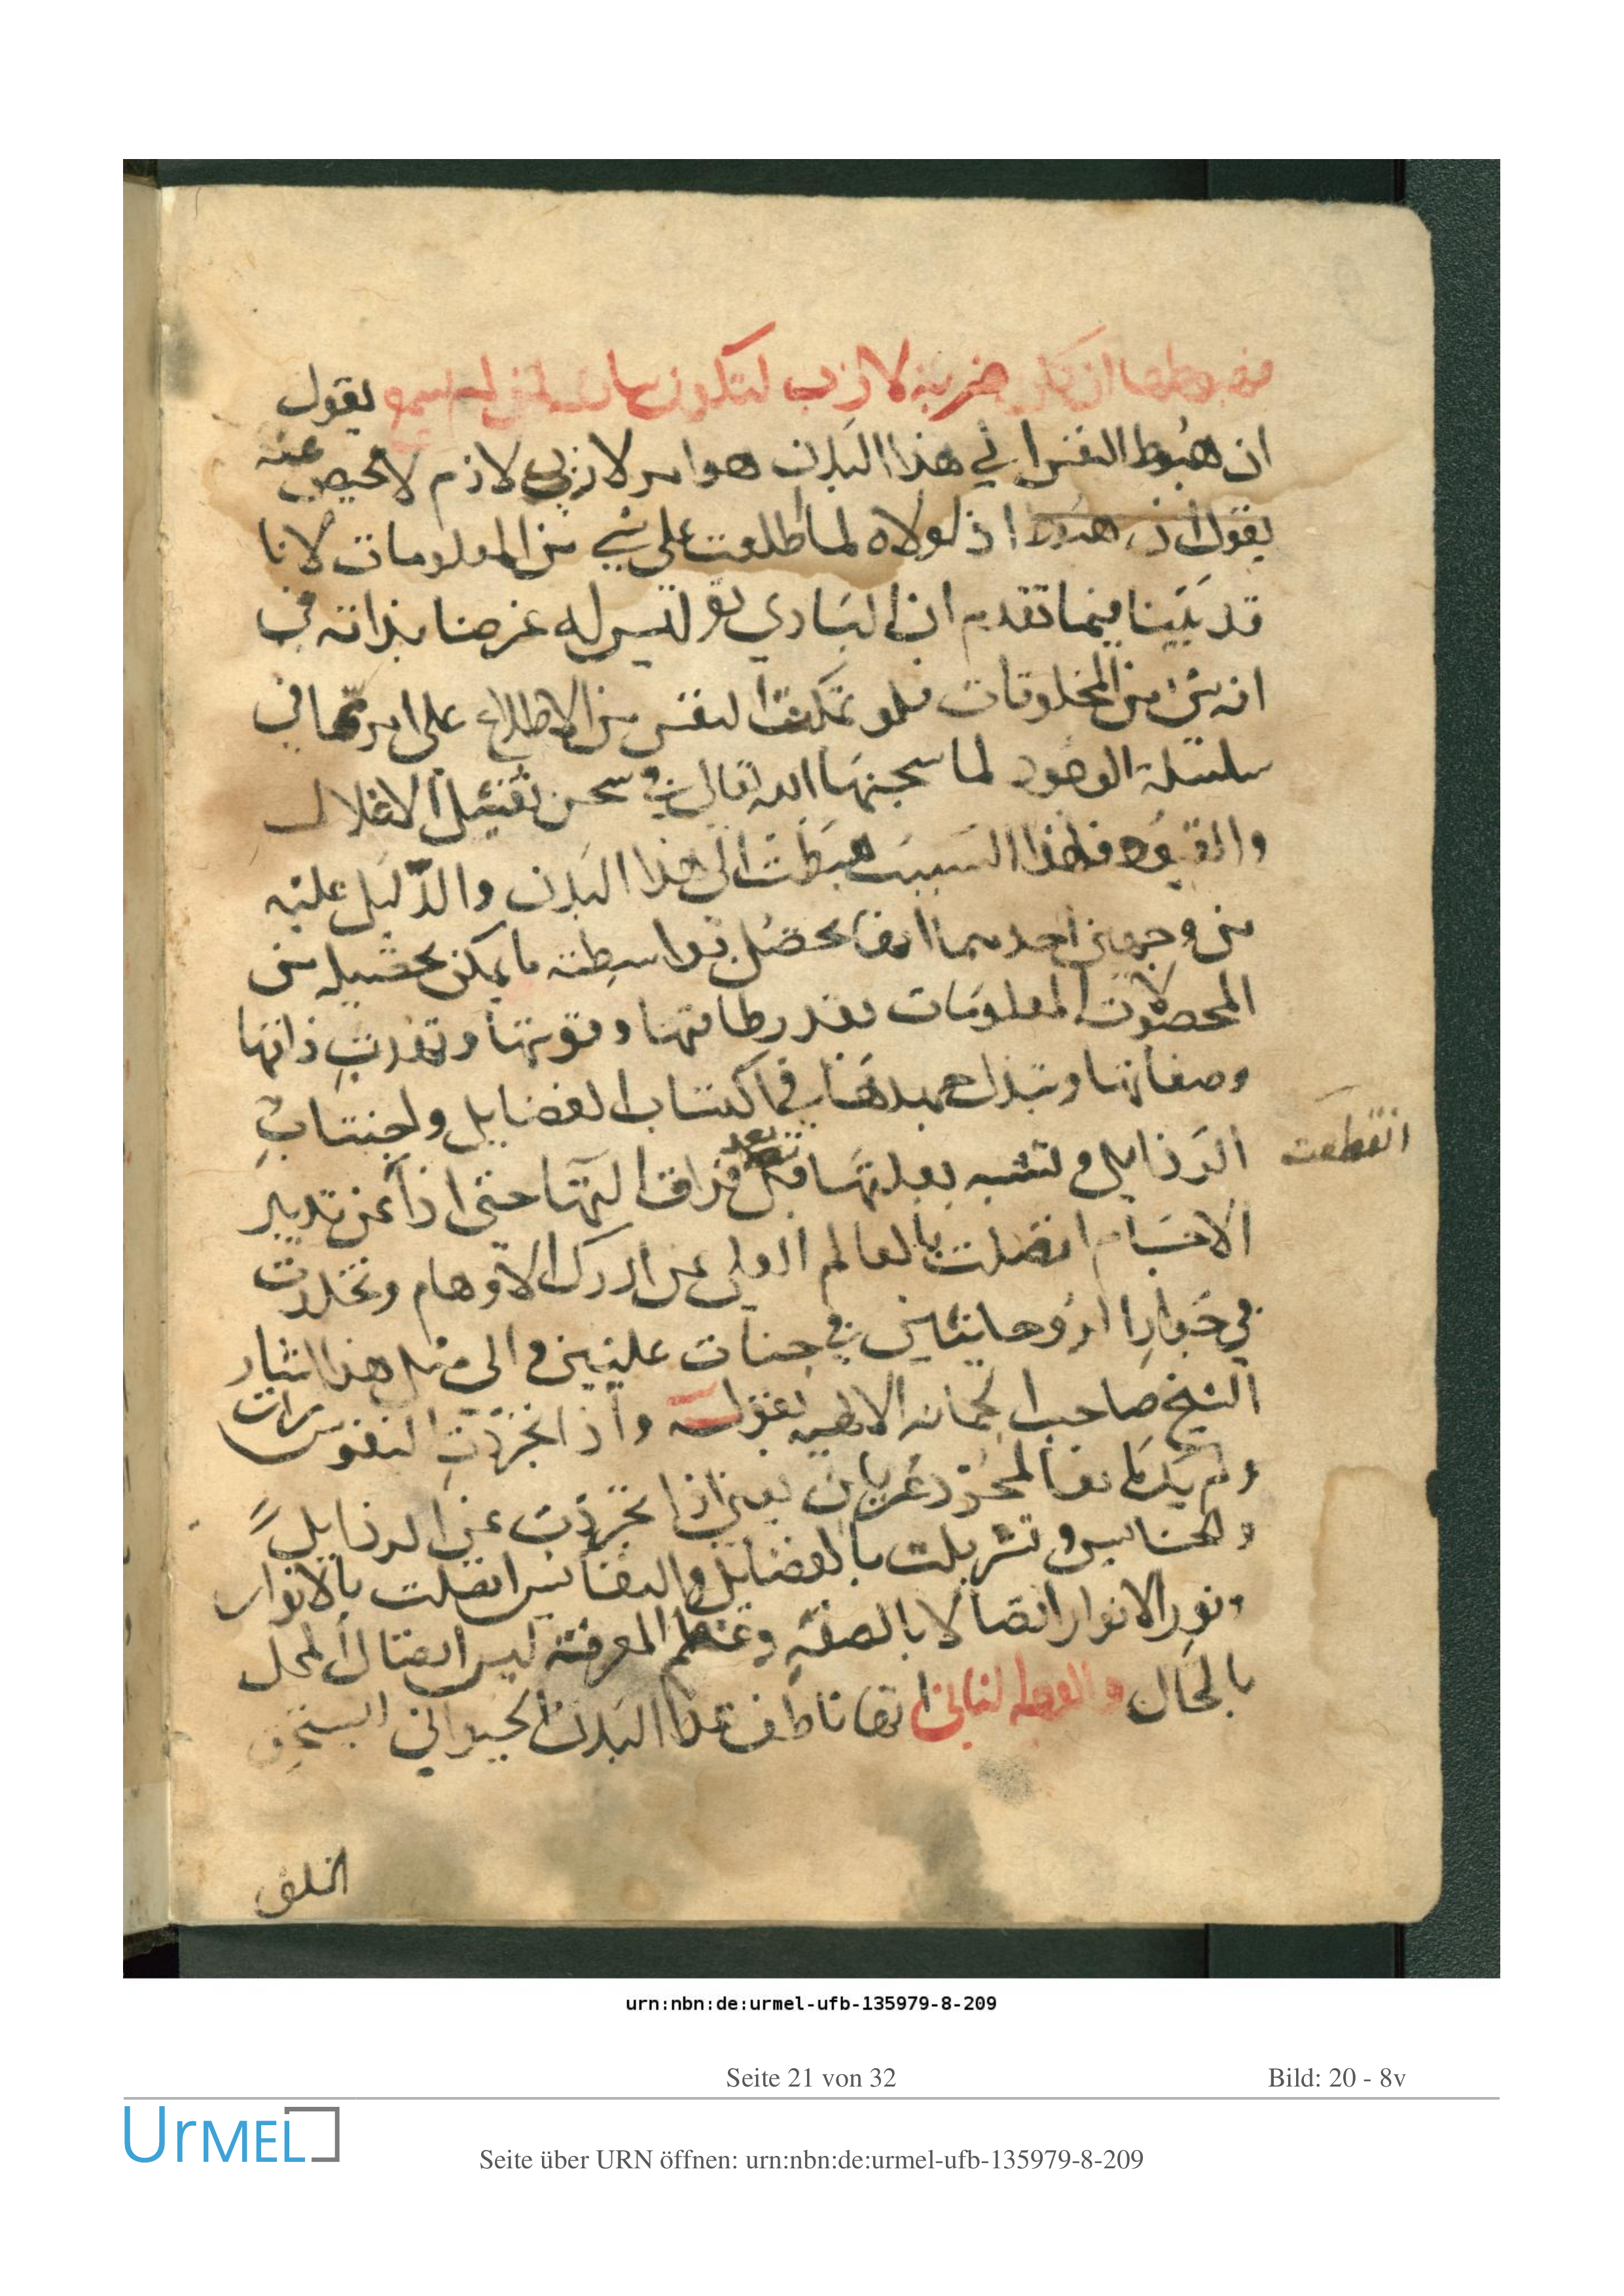 فهبوطها ان كان ضربة لازب لتكون سامعة لما لم يسمع يقول
ان هبوط النفس الي هذا البدن هو امر لازب لازم لا محيص عنه
يقول اذ هبوط اذ لولاه لما اطلعت على شي من المعلومات لانا
قد بيّنا فيما تقدم ان الباري تع ليس له غرضا بذاته في
انه شئ من المخلوقات فلو تمكنت النفس من الاطلاع على امرتها في
سلسلة الوجود لما سجنها الله تعالى في سجن ثقيل الاغلال
والقيود فلهذا السبب هبطت الى هذا البدن والدّليل عليه
من وجهين احدهما انها يحصل بواسطته ما يمكن تحصيله من
المحصلات المعلومات بقدر طاقتها وقوتها وتهذب ذاتها
وصفاتها وتبذل جهدها في اكتساب الفضايل واجتناب
الرذايل وتشبه بعلتها قبل فراق التها حتى اذا عن تدبير
بعد
انقطعت
الاجسام اتصلت بالعالم العلي عن ادرك الاوهام وتخلدت
في جوار الروحانيين في جنات عليين والى مثل هذا اشار
الشيخ صاحب الجمانه الالهيه بقوله واذا تجرّدت النفوس
ولم يك لها المجرّد عريان يعني اذا تجرّدت عن الرذايل
والخسايس وتسربلت بالفضايل والنفايس اتصلت بالانوار
ونور الانوار اتصالا بالصفة وعظم المعرفة ليس اتصال المحل
بالحال والوجه الثاني انها ناطف هذا البدن الحيواني المستحق
الخلق
urn:nbn:de:urmel-ufb-135979-8-209
Seite 21 von 32
Bild: 20 - 8v
UrMEL
Seite über URN öffnen: urn:nbn:de:urmel-ufb-135979-8-209